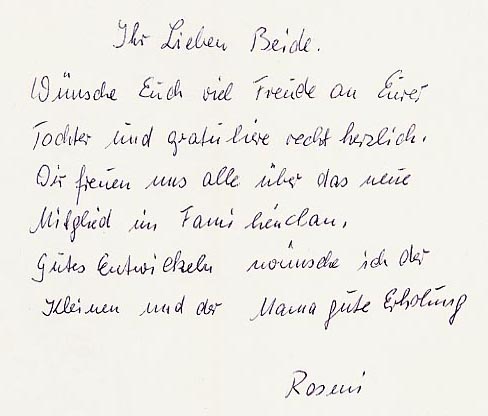 Ihr Lieben Beide.
Wünsche Euch viel Freude an Eurer
Tochter und gratuliere recht herzlich.
Wir freuen uns alle über das neue
Mitglied im Familienclan.
Gutes Entwickeln wünsche ich der
Kleinen und der Mama gute Erholung
Roseni